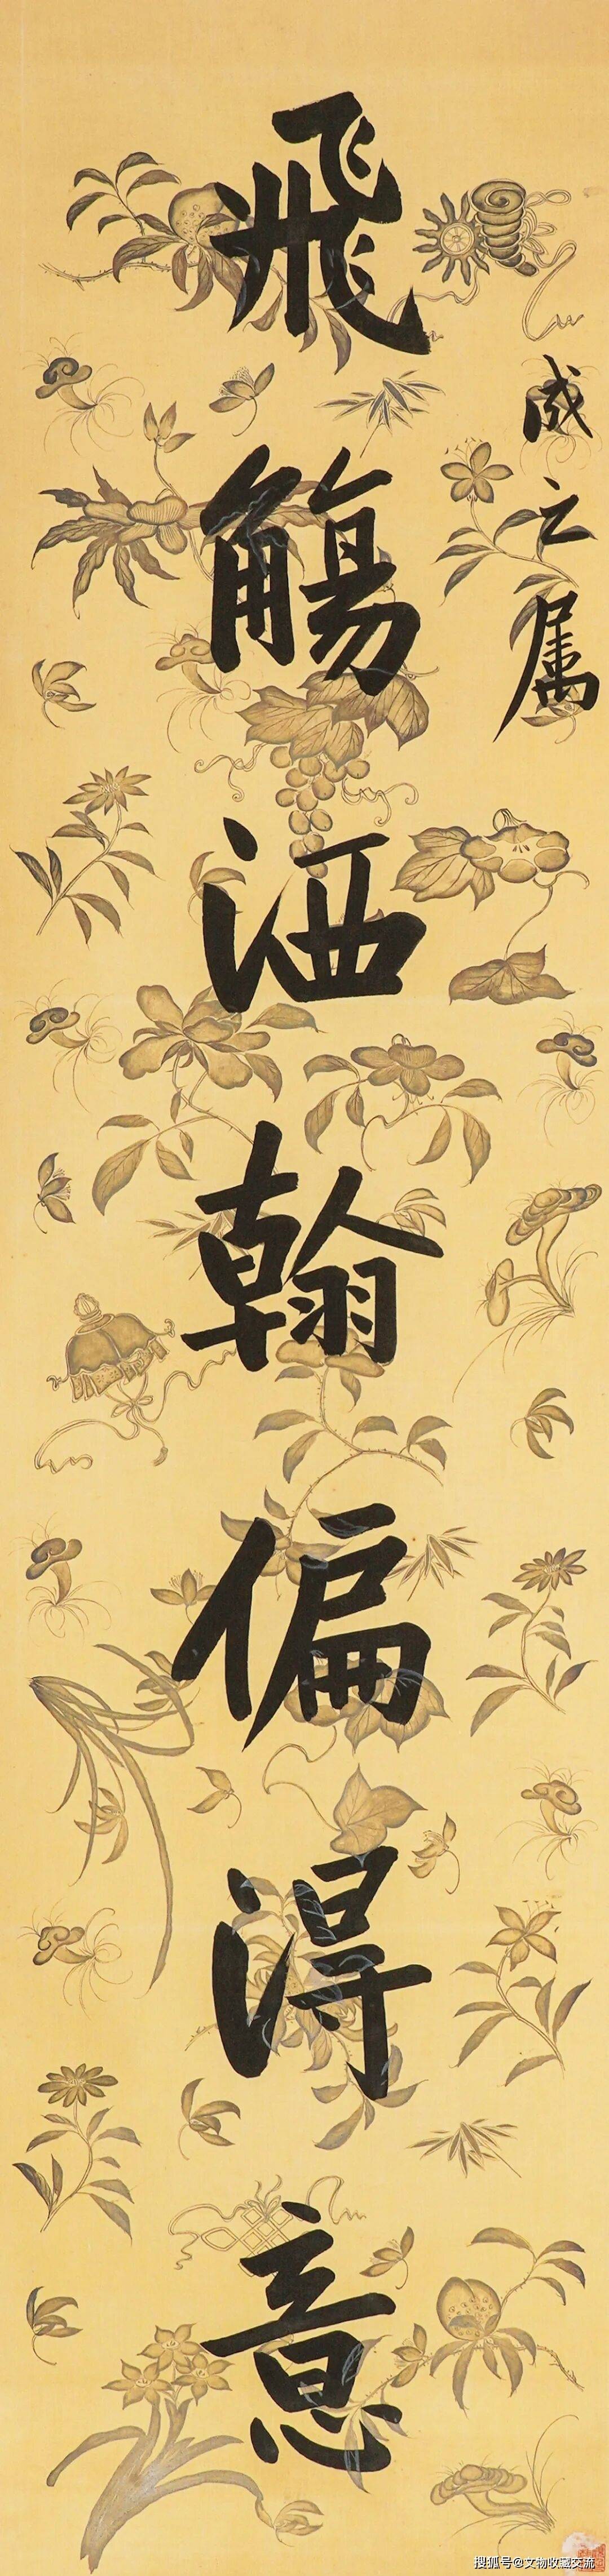 成之属
飛觴洒翰偏得意
搜狐号@文物收藏交流